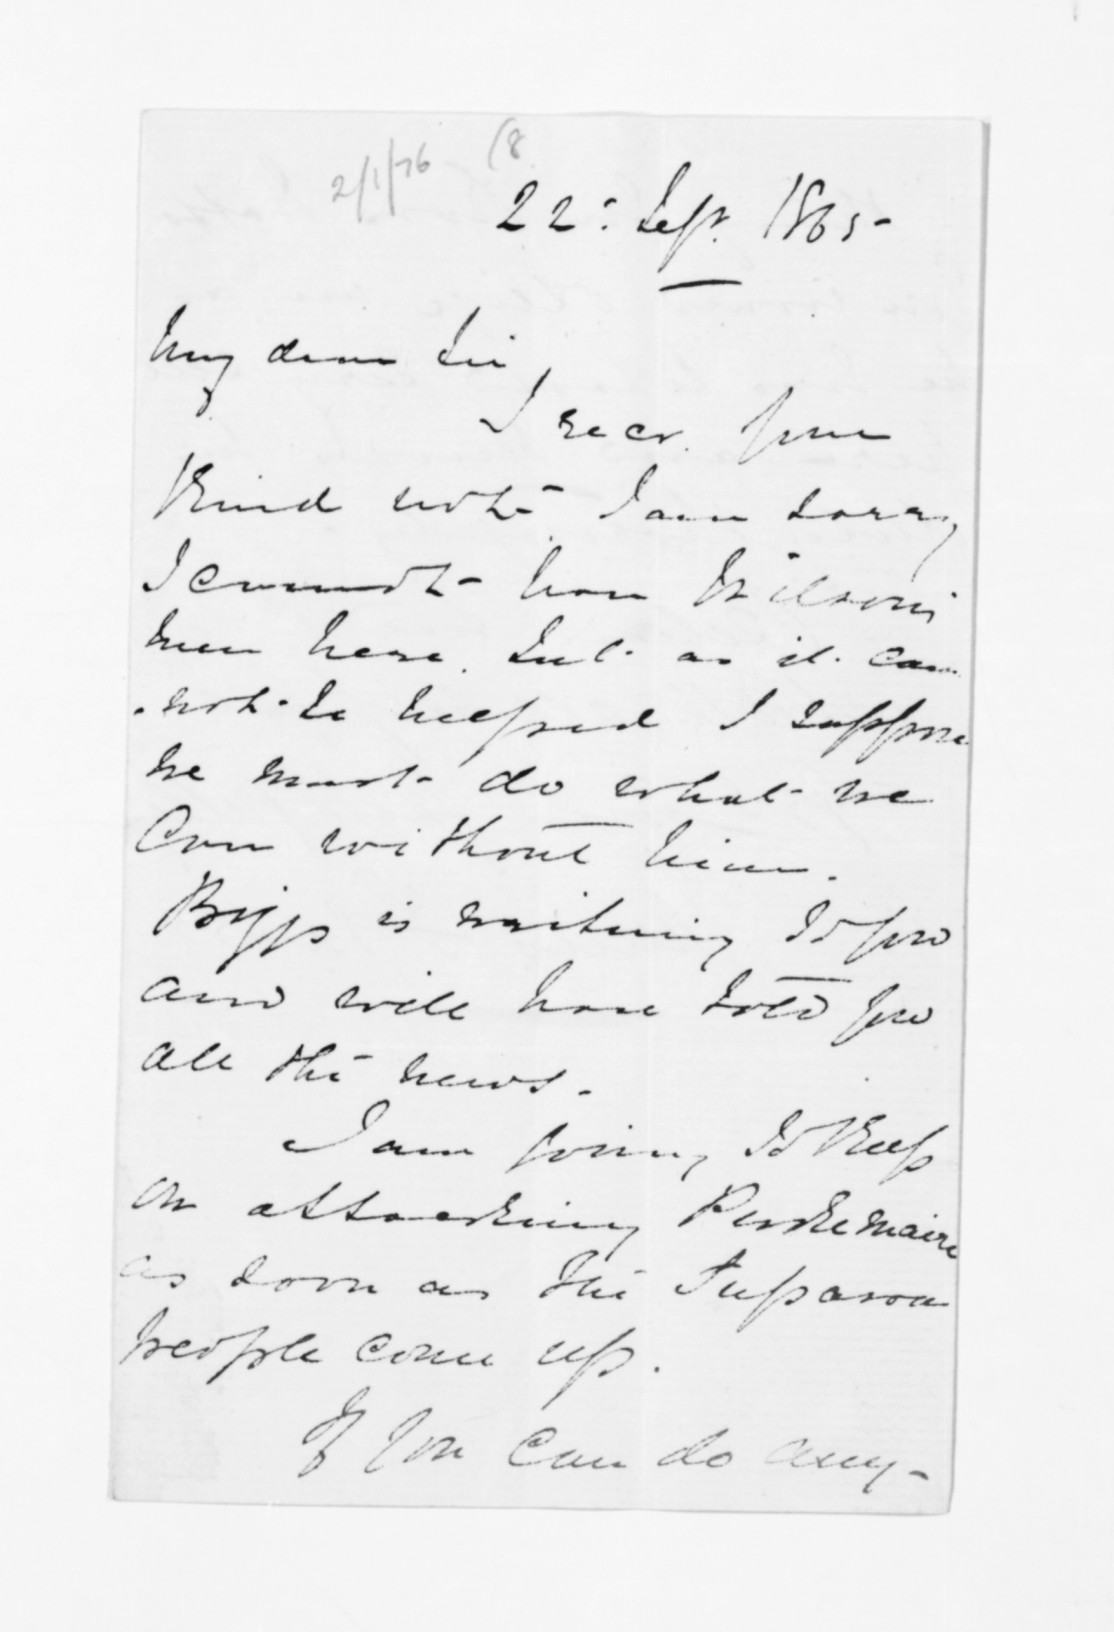 2/1/76 (8
22: Sept. 1865-
My dear Sir,
I recd. your
kind note I am sorry
I cannot have Wilson's
men here. but as it can
not be helped I suppose
we must do what we
Can without him.
Biggs is writing to you
and will have told you
all the news.
I am going to keep
on attacking Pukemaire
as soon as the Tuparoa
people come up.
If you can do any-